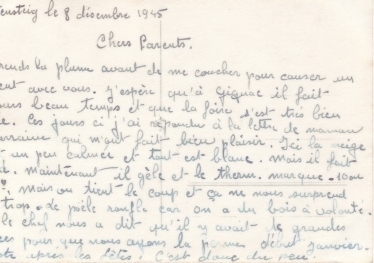 le 8 décembre 1945
Chers Parents.
rends la plume avant de me coucher pour causer un
ent avec vous. J'espère qu'à Gignac il fait
ours beau temps et que la foire s'est très bien
e. Ces jours ci j'ai répondu à la lettre de maman
arraine qui m'ont fait bien plaisir. Ici la neige
t un peu calmée et tout est blanc. Mais il fait
d. Maintenant il gèle et le therm. marque -10 ou
, mais on tient le coup et ça ne nous surprend
trop. Le poële ronfle car on a du bois à volonté.
le chef nous a dit qu'il y avait de grandes
ces pour que nous ayons la perme début janvier.
après les fêtes. C'est donc du peu.